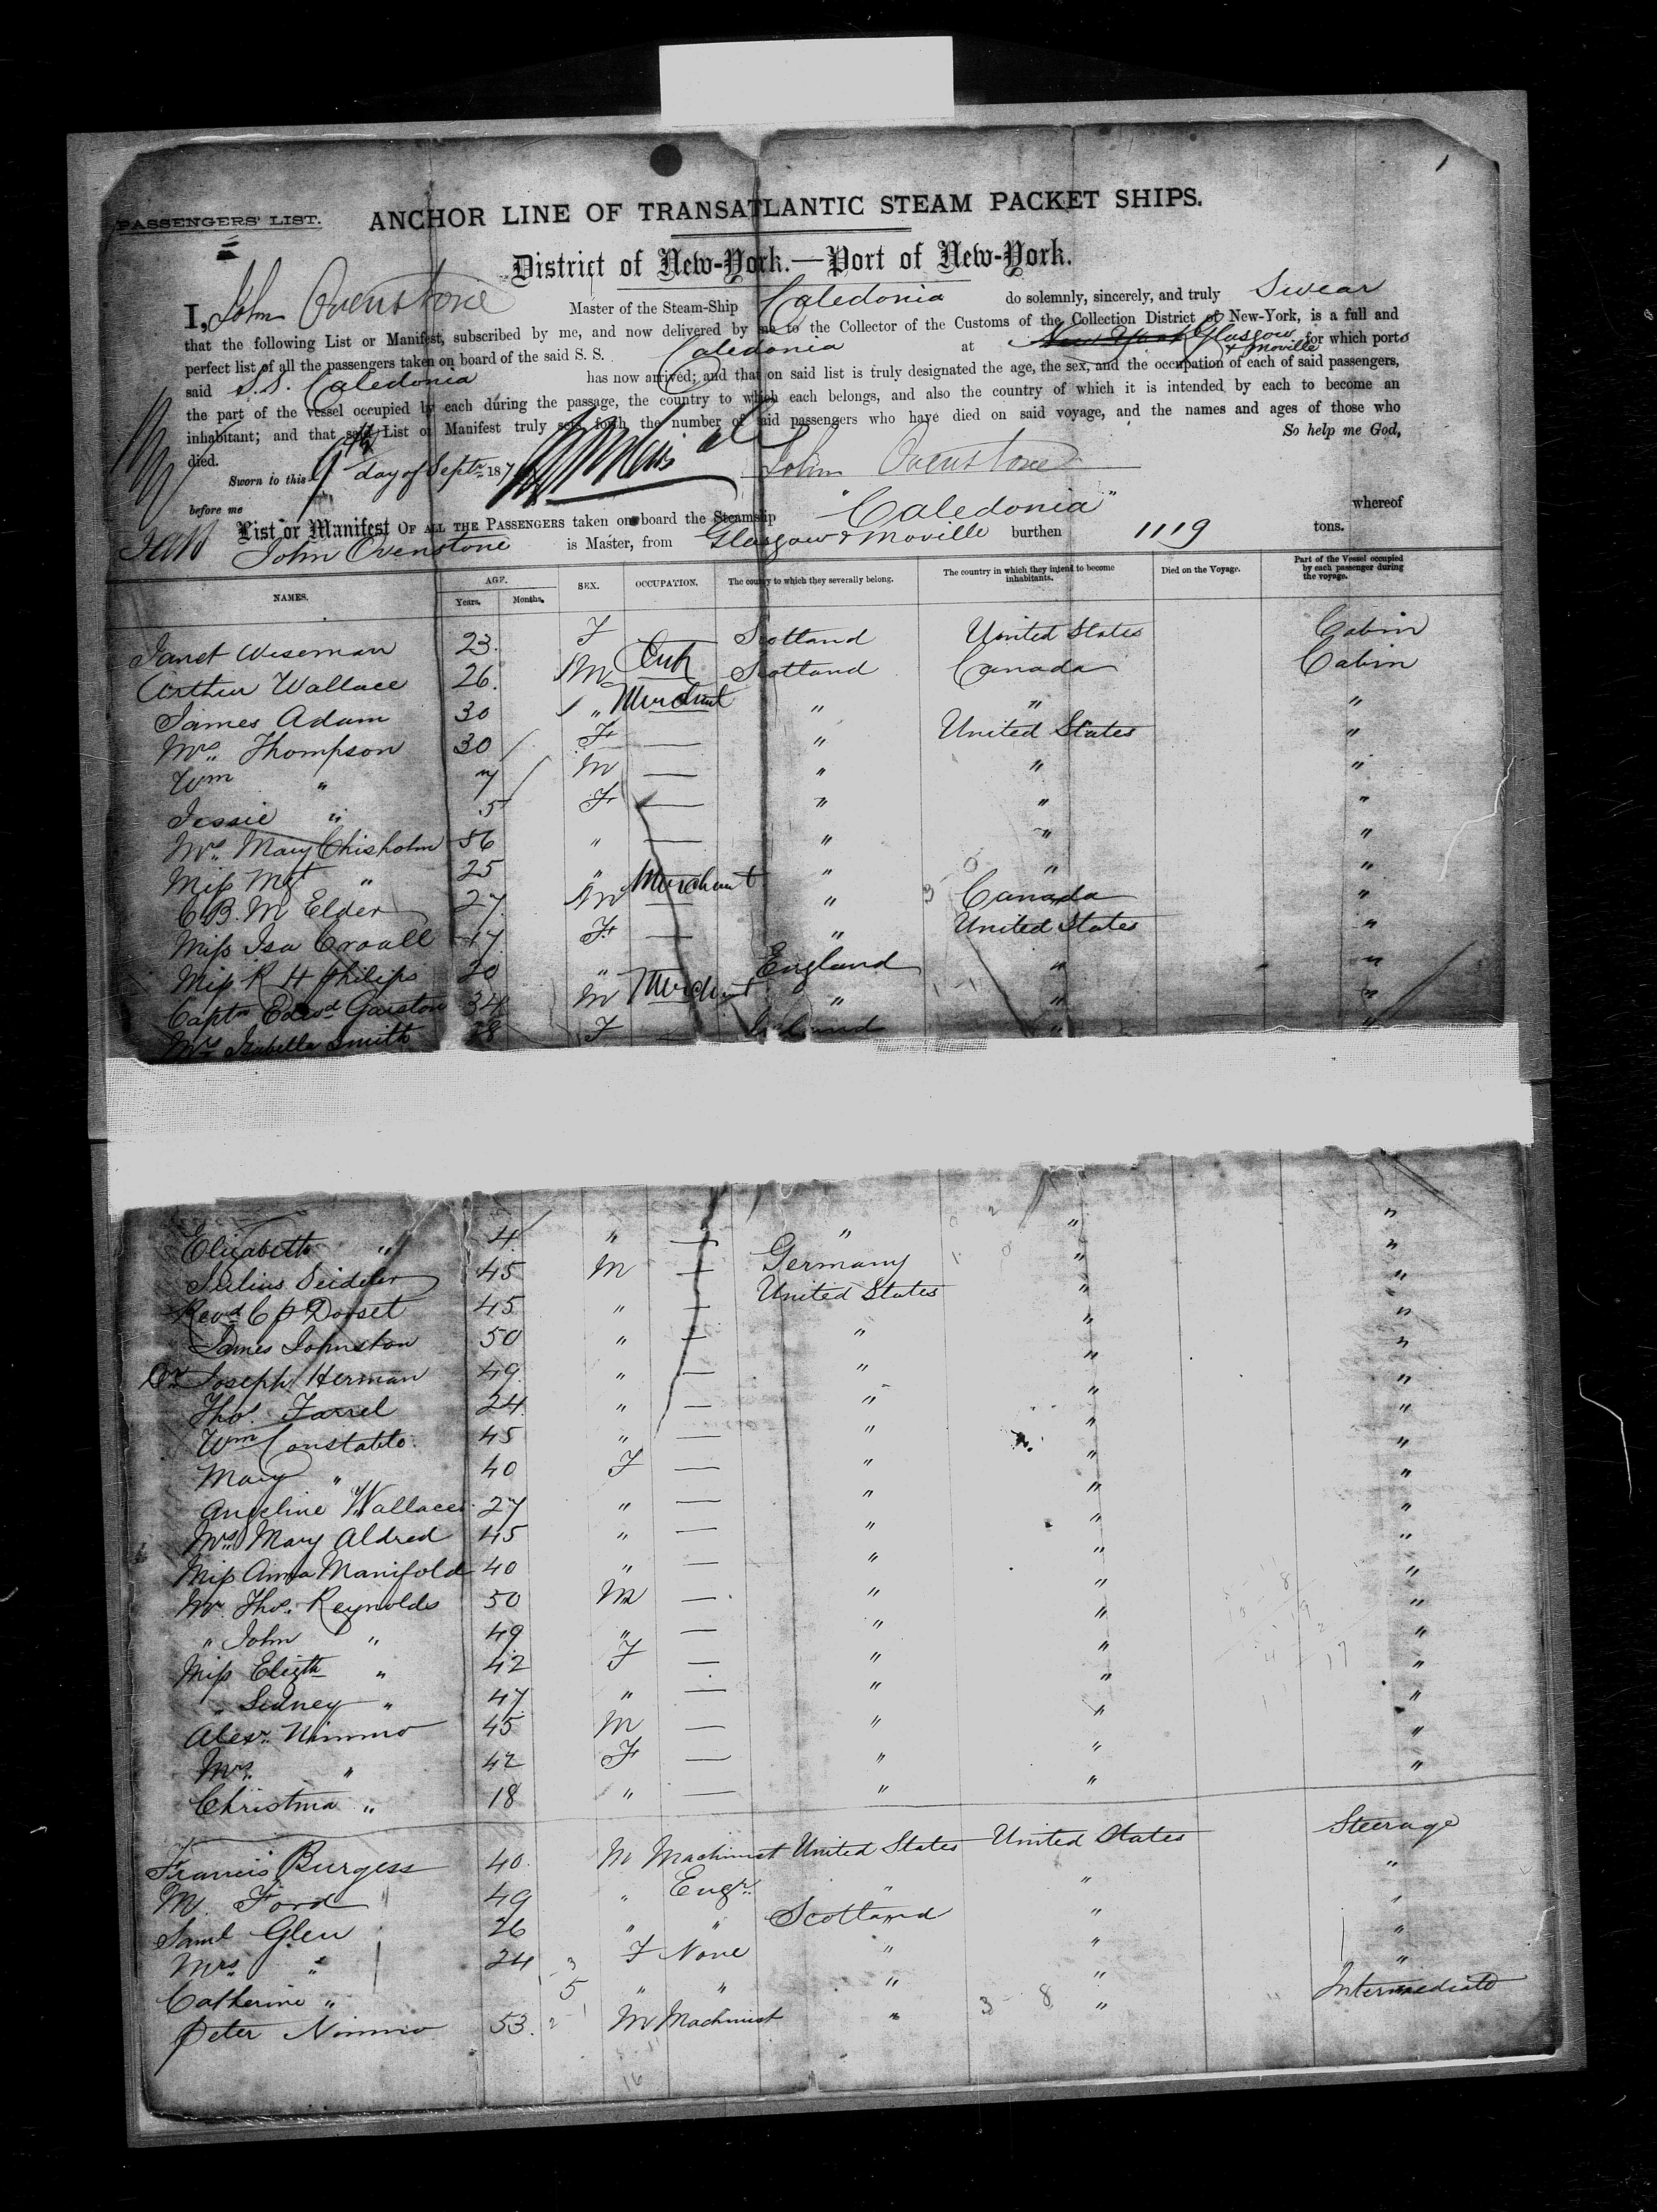 1
PASSENGERS' LIST.
ANCHOR LINE OF TRANSATLANTIC STEAM PACKET SHIPS.
District of New-York.—Port of New-York.
I, John Ovenstone Master of the Steam-Ship Caledonia do solemnly, sincerely, and truly Swear
that the following List or Manifest, subscribed by me, and now delivered by me to the Collector of the Customs of the Collection District of New-York, is a full and
perfect list of all the passengers taken on board of the said S. S. Caledonia at New York Glasgow & Moville for which ports
said S.S. Caledonia has now arrived; and that on said list is truly designated the age, the sex, and the occupation of each of said passengers,
the part of the vessel occupied by each during the passage, the country to which each belongs, and also the country of which it is intended by each to become an
inhabitant; and that said List or Manifest truly sets forth the number of said passengers who have died on said voyage, and the names and ages of those who
died. So help me God,
Sworn to this 9th day of Septr 187 John Ovenstone
before me
List or Manifest OF ALL THE PASSENGERS taken on board the Steamship "Caledonia" whereof
John Ovenstone is Master, from Glasgow & Moville burthen 1119 tons.
NAMES. AGE. Years. Months. SEX. OCCUPATION. The country to which they severally belong. The country in which they intend to become inhabitants. Died on the Voyage. Part of the Vessel occupied by each passenger during the voyage.
Janet Wiseman 23 F — Scotland United States Cabin
Arthur Wallace 26 M Clerk Scotland Canada Cabin
James Adam 30 " Merchant " " "
Mrs. Thompson 30 F — " United States "
Wm " 7 M — " " "
Jessie " 5 F — " " "
Mrs. Mary Chisholm 56 " — " " "
Miss Mgt " 25 " " " "
C B. M Elder 27 M Merchant " Canada "
Miss Isa Croall 17 F — " United States "
Miss R H Philips 20 " England " "
Captn Edwd Garston 34 M Merchant " " "
Mrs Isabella Smith 28 F — " "
Elizabeth " 4 " — " " "
Julius Seideler 45 M — Germany " "
Revd C P Dorset 45 " — United States " "
James Johnston 50 " — " " "
Dr Joseph Herman 49 " — " " "
Thos. Farrel 24 " — " " "
Wm Constable 45 " — " " "
Mary " 40 F — " " "
Angeline Wallace 27 " — " " "
Mrs. Mary Aldred 45 " — " " "
Miss Anna Manifold 40 " — " " "
Mr Thos. Reynolds 50 M — " " "
" John " 49 " — " " "
Miss Elizth " 42 F — " " "
" Sidney " 47 " — " " "
Alexr. Nimmo 45 M — " " "
Mrs. " 42 F — " " "
Christina " 18 " — " " "
Francis Burgess 40 M Machinist United States United States Steerage
M. Ford 49 " Engr. " " "
Saml Glen 26 " " Scotland " "
Mrs. " 24 F None " " "
Catherine " 5 " " " " "
Peter Nimmo 53 M Machinist " " Intermediate